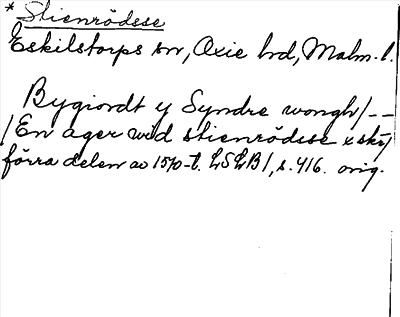 * Stienrödese
Eskilstorps sn, Oxie hd, Malm. l.
Bygiordt y Syndre wongh/--
/En ager wed stienrödese x skr/
förra delen av 1570-t. LSLB1, s. 416. orig.